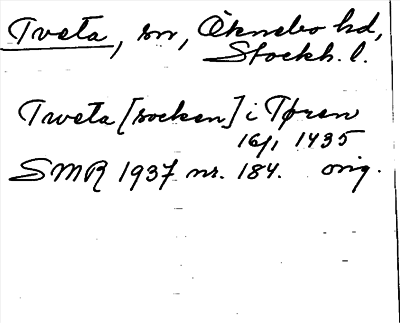 Tveta, sn, Öknebo hd,
Stockh. l.
Tweta [socken] i Tøren
16/1 1435
SMR 1937 nr. 184. orig.